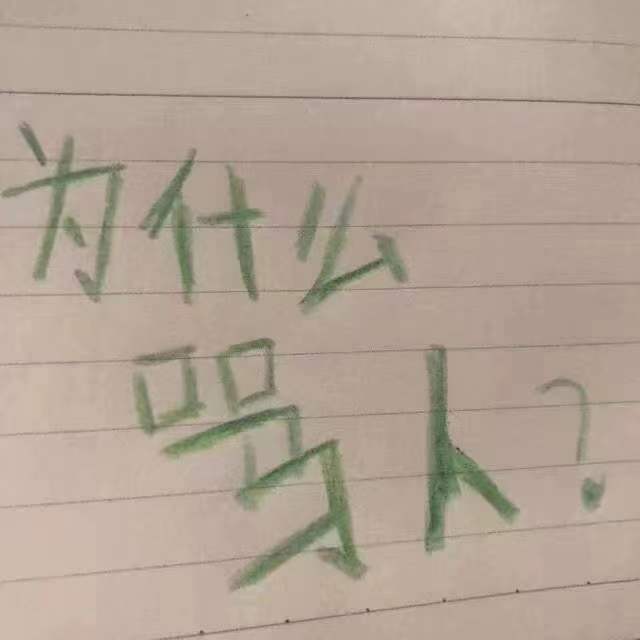 为什么
骂人?